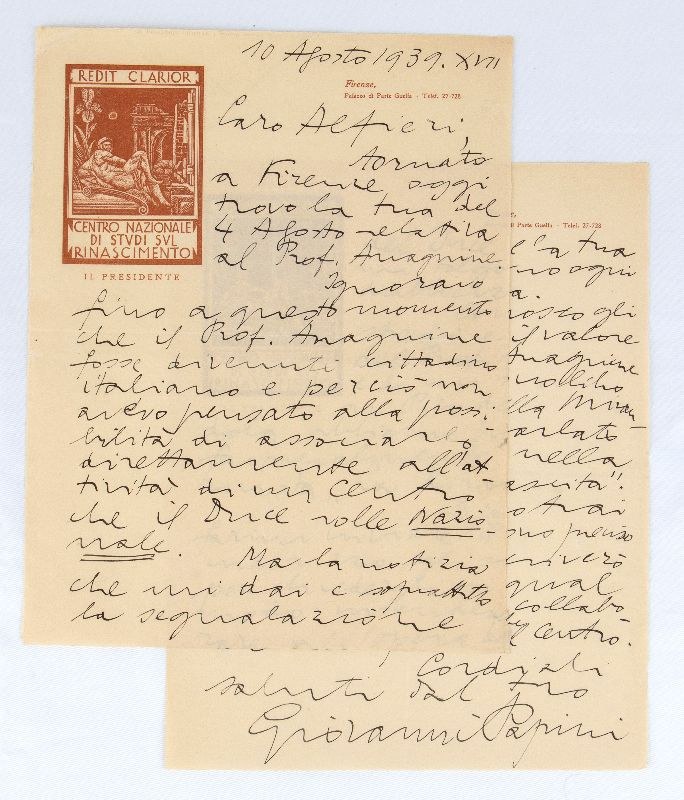 10 Agosto 1939. XVII
REDIT CLARIOR
CENTRO NAZIONALE
DI STVDI SVL
RINASCIMENTO
IL PRESIDENTE
Firenze,
Palazzo di Parte Guelfa - Telef. 27-728
Caro Alfieri,
tornato
a Firenze oggi
trovo la tua del
4 Agosto relativa
al Prof. Anagnine.
Ignoravo
fino a questo momento
che il Prof. Anagnine
fosse divenuti cittadino
italiano e perciò non
avevo pensato alla possi-
bilità di associarlo
direttamente all'at-
tività di un Centro
che il Duce volle Nazio-
nale.
Ma la notizia
che mi dai e soprattutto
la segnalazione
di Parte Guelfa - Telef. 27-728
la tua
ogni
a.
gli
il valore
Anagnine
arlato
nella
ascita".
preciso
qual
collabo
Centro.
Cordiali
saluti dal tuo
Giovanni Papini